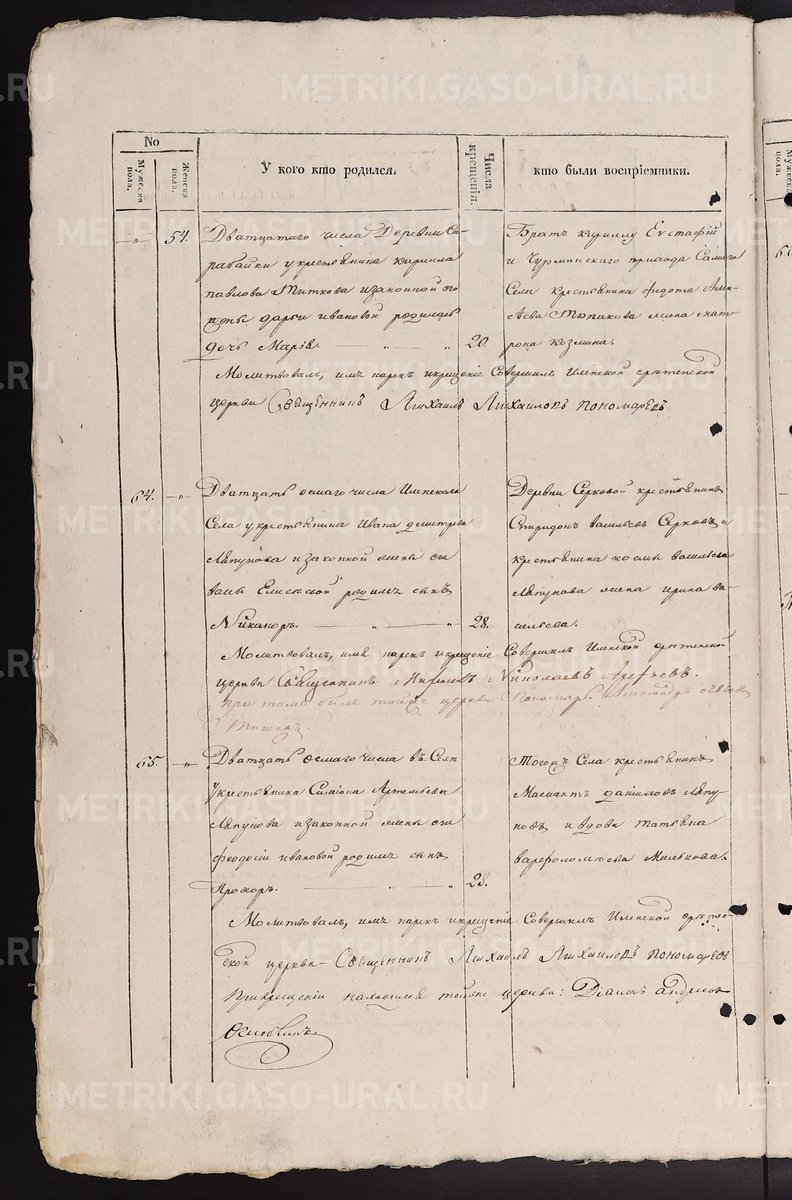 No
Мужеска пола.
Женска пола.
У кого кто родился.
Числа крещенія.
кто были воспріемники.
54.
Дватцатаго числа Деревни Са-
рабайки у крестьянина кирилла
павлова Титкова и законной его
жены дарьи ивановой родилась
дочь Марія.
20.
Братъ кириллу Евстафій
и Чурманскаго прихода Самаго
Села крестьянина федота Алек-
сѣева жена мат-
рона козмина.
Молитвовалъ, имя нарекъ и крещеніе Совершилъ Иленской срѣтенской
церкви Священникъ Михаилъ Михаиловъ пономаревъ
64.
Дватцать осмаго числа Иленскаго
Села у крестьянина Ивана димитрева
Ляпунова и законной жены
Елисѣевой родился сынъ
Никаноръ.
28.
Деревни Серковой крестьянинъ
Спиридонъ васильевъ Серковъ и
крестьянина космы васильева
Ляпунова жена ирина ва-
сильева.
Молитвовалъ, имя нарекъ и крещеніе Совершилъ Иленской срѣтенской
церкви Священникъ Николаевъ
при томъ былъ тойже церкви Пономарь Александръ
65.
Дватцать осмаго числа въ Селѣ
У крестьянина Симіона Артемьева
Ляпунова и законной жены его
феодосіи ивановой родился сынъ
Прохоръ.
28.
Тогожъ Села крестьянинъ
даниловъ Ляпу-
новъ и вдова татьяна
варфоломѣева Милькова.
Молитвовалъ, имя нарекъ и крещеніе Совершилъ Иленской срѣтен-
ской церкви Священникъ Михаилъ Михаиловъ пономаревъ
При крещеніи находился тойже церкви: Діаконъ андрей
METRIKI.GASO-URAL.RU